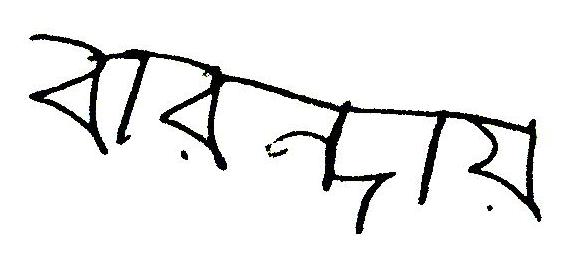 বারন্দায়